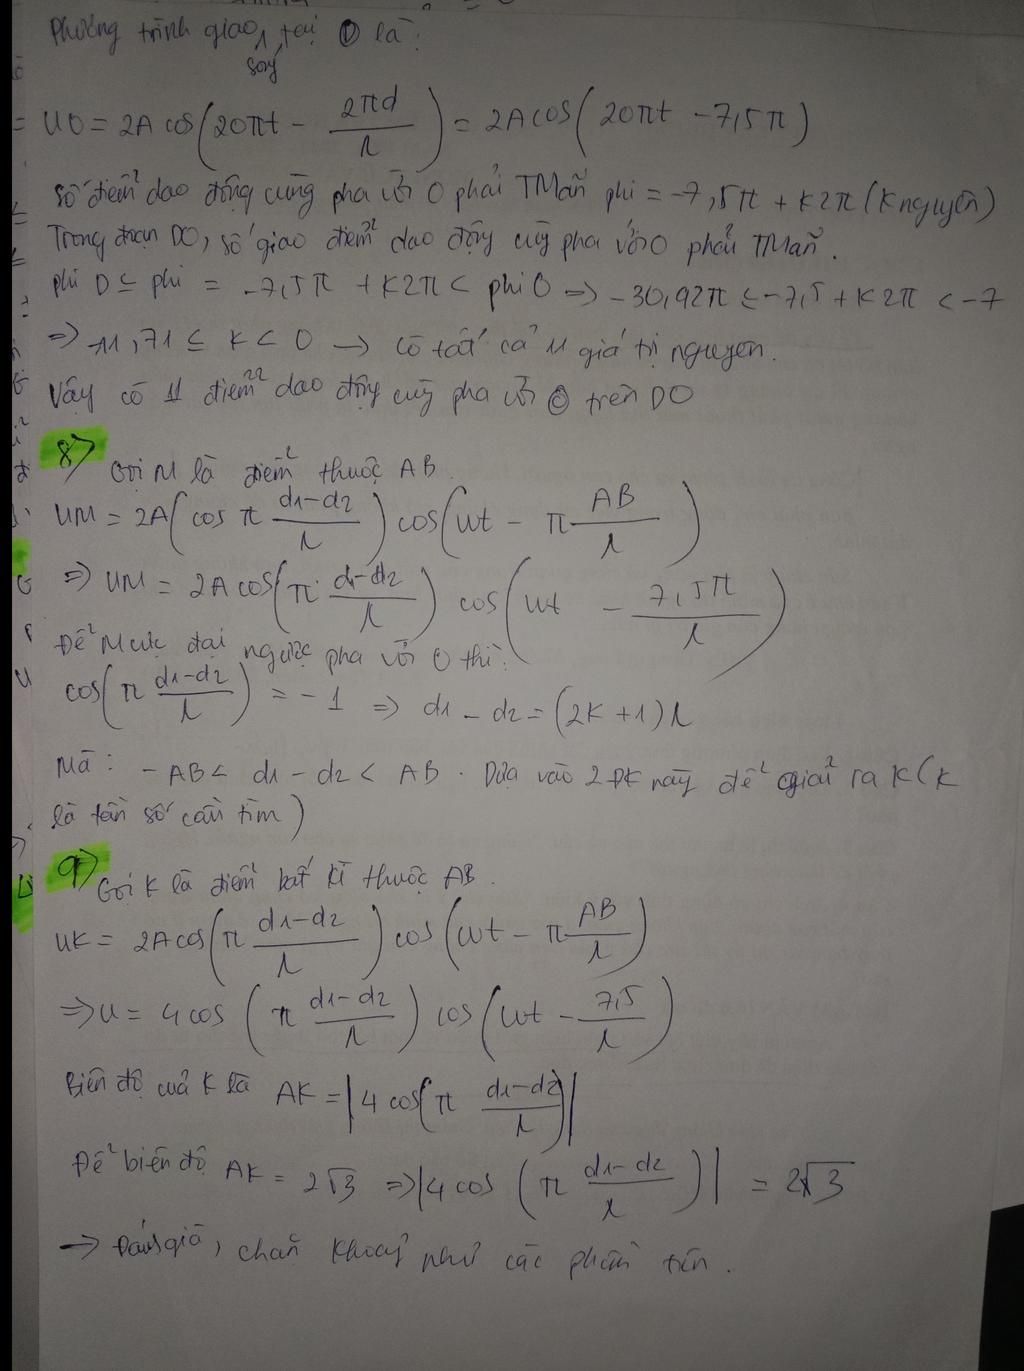 Phương trình giao sóng tại O là:
UO = 2A cos(20πt - 2πd/λ) = 2A cos(20πt - 7,5π)
Số điểm dao động cùng pha với O phải TMãn phi = -7,5π + k2π (k nguyên)
Trong đoạn DO, số giao điểm dao động cùng pha với O phải TMãn.
phi D ≤ phi = -7,5π + k2π < phi O => -30,92π ≤ -7,5 + k2π < -7
=> -11,71 ≤ k < 0 → có tất cả 11 giá trị nguyên.
Vậy có 11 điểm dao động cùng pha với O trên DO
8) Gọi M là điểm thuộc AB.
UM = 2A(cos π (d1-d2)/λ) cos(ωt - π AB/λ)
=> UM = 2A cos(π (d1-d2)/λ) cos(ωt - 7,5π/λ)
Để M cực đại ngược pha với O thì:
cos(π (d1-d2)/λ) = -1 => d1 - d2 = (2k+1)λ
Mà: -AB < d1 - d2 < AB. Dựa vào 2 ĐK này để giải ra k (k
là tần số cần tìm)
9) Gọi K là điểm bất kì thuộc AB.
UK = 2A cos(π (d1-d2)/λ) cos(ωt - π AB/λ)
=> U = 4 cos(π (d1-d2)/λ) cos(ωt - 7,5/λ)
Biên độ của K là AK = |4 cos(π (d1-d2)/λ)|
Để biên độ AK = 2√3 => |4 cos(π (d1-d2)/λ)| = 2√3
→ Đánh giá, chặn khoảng như các phần trên.